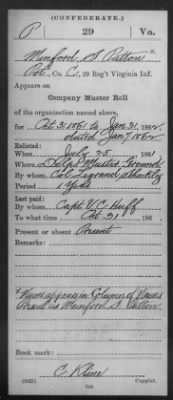 (CONFEDERATE.)
P 29 Va.
Minford S. Patton *
Pvt., Co. C, 29 Reg't Virginia Inf.
Appears on
Company Muster Roll
of the organization named above,
for Oct. 31 1861 to Jan. 31, 1862.
dated Jan 7 1862
Enlisted:
When July 25, 186
Where Muster Ground
By whom Col.
Period 1 year
Last paid:
By whom Capt. V. C. Huff
To what time Oct 31, 186 .
Present or absent Present
Remarks:
* Name appears in Column of Names
Present as S. Patton.
Book mark:
(642) Copyist.